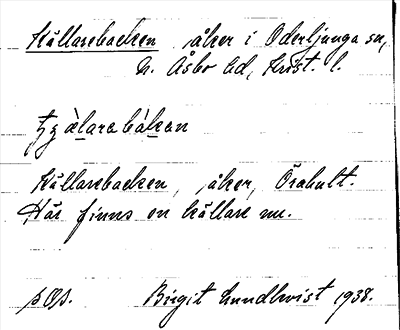 Källarebacken åker i Oderljunga sn,
N. Åsbo hd, Krist. l.
Källarebacken, åker, Örahult.
Här finns en källare nu.
Birgit Lundkvist 1938.